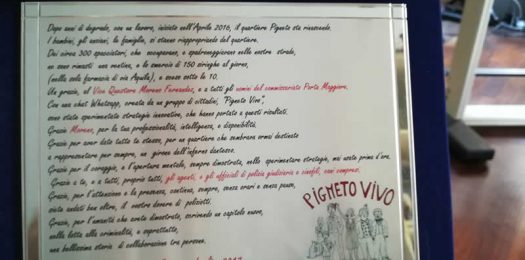 Dopo anni di degrado, con un lavoro, iniziato nell'Aprile 2016, il quartiere Pigneto sta rinascendo.
I bambini, gli anziani, le famiglie, si stanno riappropriando del quartiere.
Dei circa 300 spacciatori, che occupavano, e spadroneggiavano nelle nostre strade,
ne sono rimasti una ventina, e lo smercio di 150 siringhe al giorno,
(nella sola farmacia di via Aquila), è sceso sotto le 10.
Un grazie, al Vice Questore Moreno Fernandez, e a tutti gli uomini del commissariato Porta Maggiore.
Con una chat Whatsapp, creata da un gruppo di cittadini, "Pigneto Vivo",
sono state sperimentate strategie innovative, che hanno portato a questi risultati.
Grazie Moreno, per la tua professionalità, intelligenza, e disponibilità.
Grazie per aver dato tutto te stesso, per un quartiere che sembrava ormai destinato
a rappresentare per sempre, un girone dell'inferno dantesco.
Grazie per il coraggio, e l'apertura mentale, sempre dimostrata, nello sperimentare strategie, mai usate prima d'ora.
Grazie a te, e a tutti, proprio tutti, gli agenti, e gli ufficiali di polizia giudiziaria e cinofili, cani compresi.
Grazie, per l'attenzione e la presenza, continua, sempre, senza orari e senza pause,
siete andati ben oltre, il vostro dovere di poliziotti.
Grazie, per l'umanità che avete dimostrato, scrivendo un capitolo nuovo,
nella lotta alla criminalità, e soprattutto,
una bellissima storia di collaborazione tra persone.
2017
PIGNETO VIVO